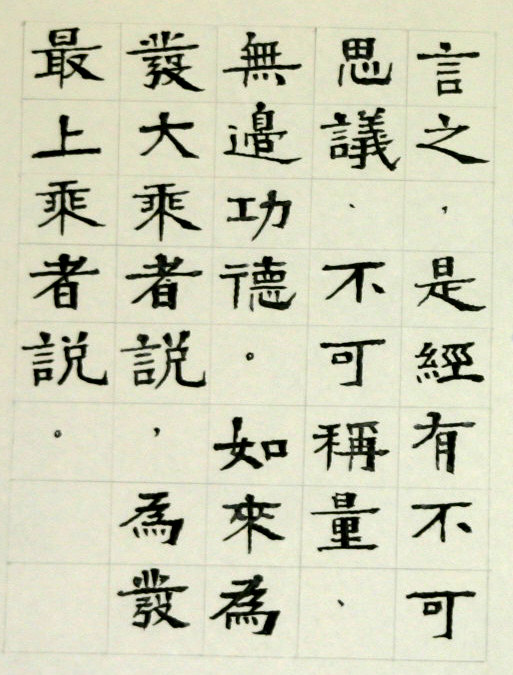 言之，是經有不可
思議、不可稱量、
無邊功德。如來為
發大乘者說，為發
最上乘者說。